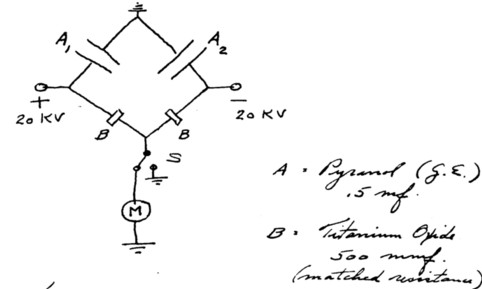 A1
A2
+
20 KV
-
20 KV
B
B
S
M
A = Pyranol (G.E.)
.5 mf.
B = Titanium Oxide
500 mmf.
(matched resistance)